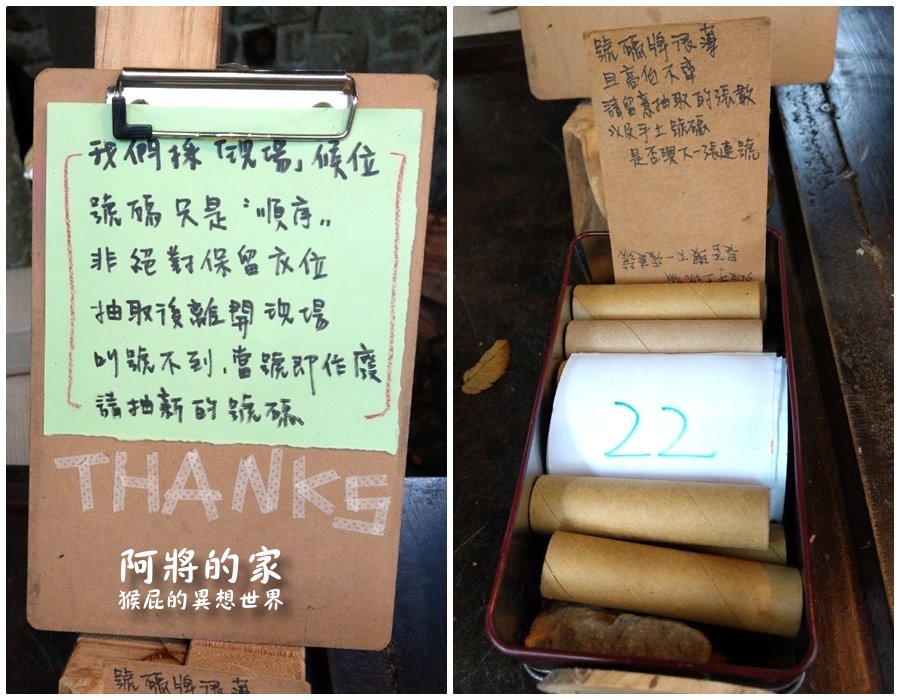 我們採「現場」候位
號碼只是"順序"
非絕對保留放位
抽取後離開現場
叫號不到,當號即作廢
請抽新的號碼
THANKS
阿將的家
猴屁的異想世界
號碼牌很薄
號碼牌很薄
且高低不齊
請留意抽取的張數
以及手上號碼
是否跟下一張連號
22